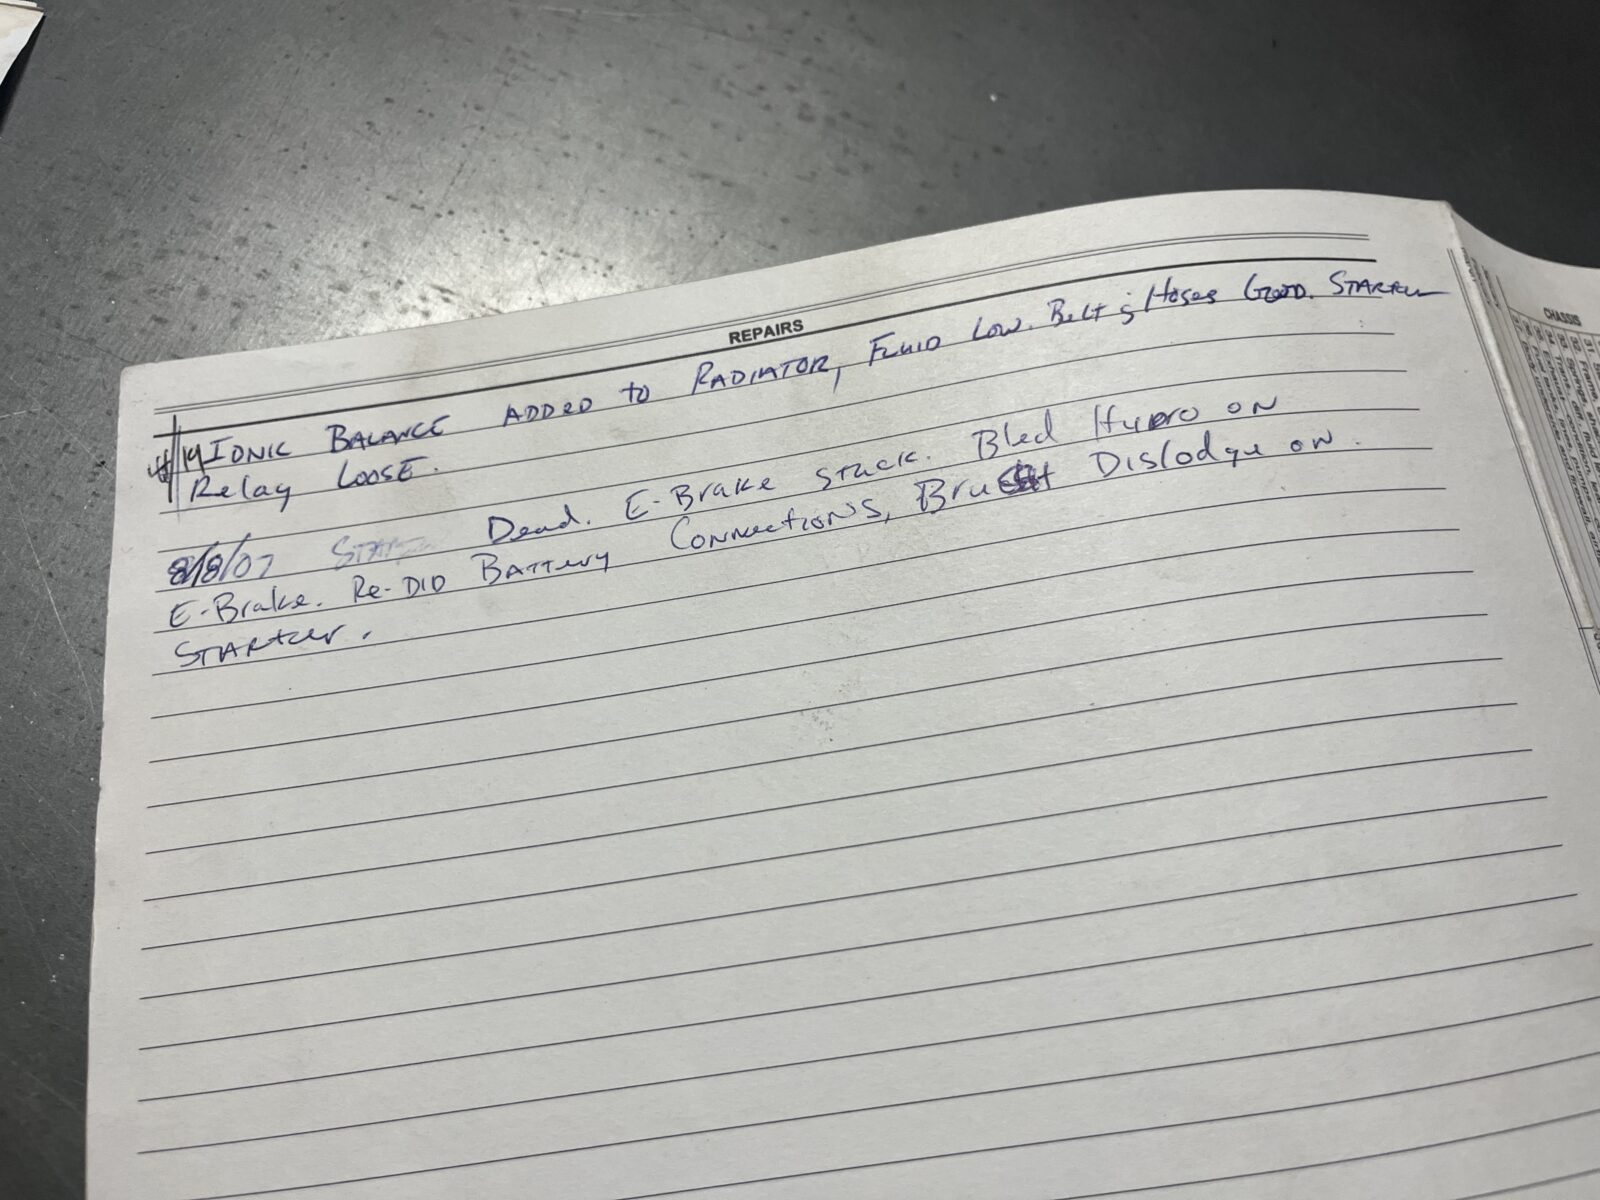 REPAIRS
#14 IONIC BALANCE ADDED to RADIATOR, FLUID LOW. BELT & HOSES GOOD. STARTER
Relay LOOSE.
8/8/07 Dead. E-Brake stuck. Bled Hydro ON
E-Brake. Re-DID BATTERY CONNECTIONS, Dislodge ON.
STARTER.
CHASSIS